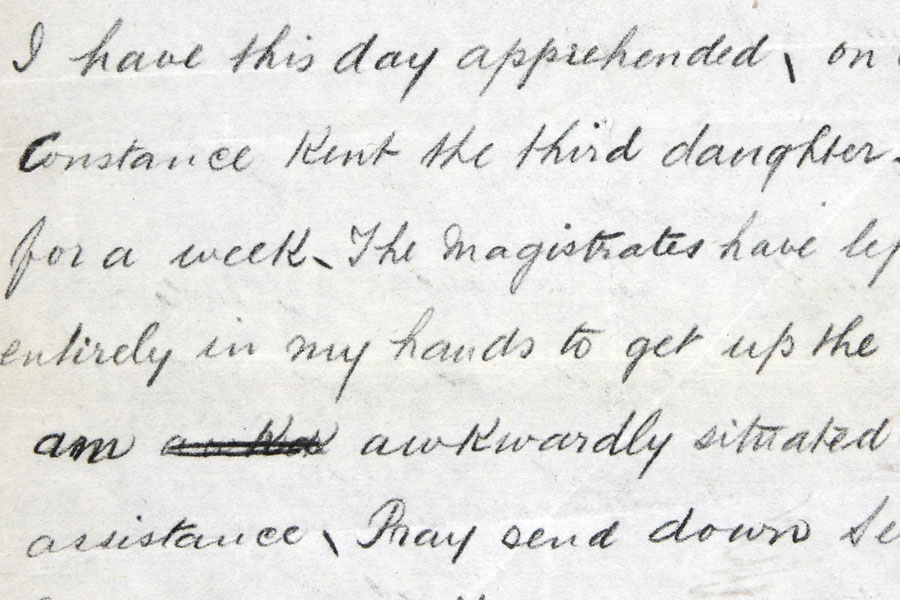 I have this day apprehended, on
Constance Kent the third daughter
for a week, The Magistrates have
entirely in my hands to get up the
am awkwardly situated
assistance, Pray send down